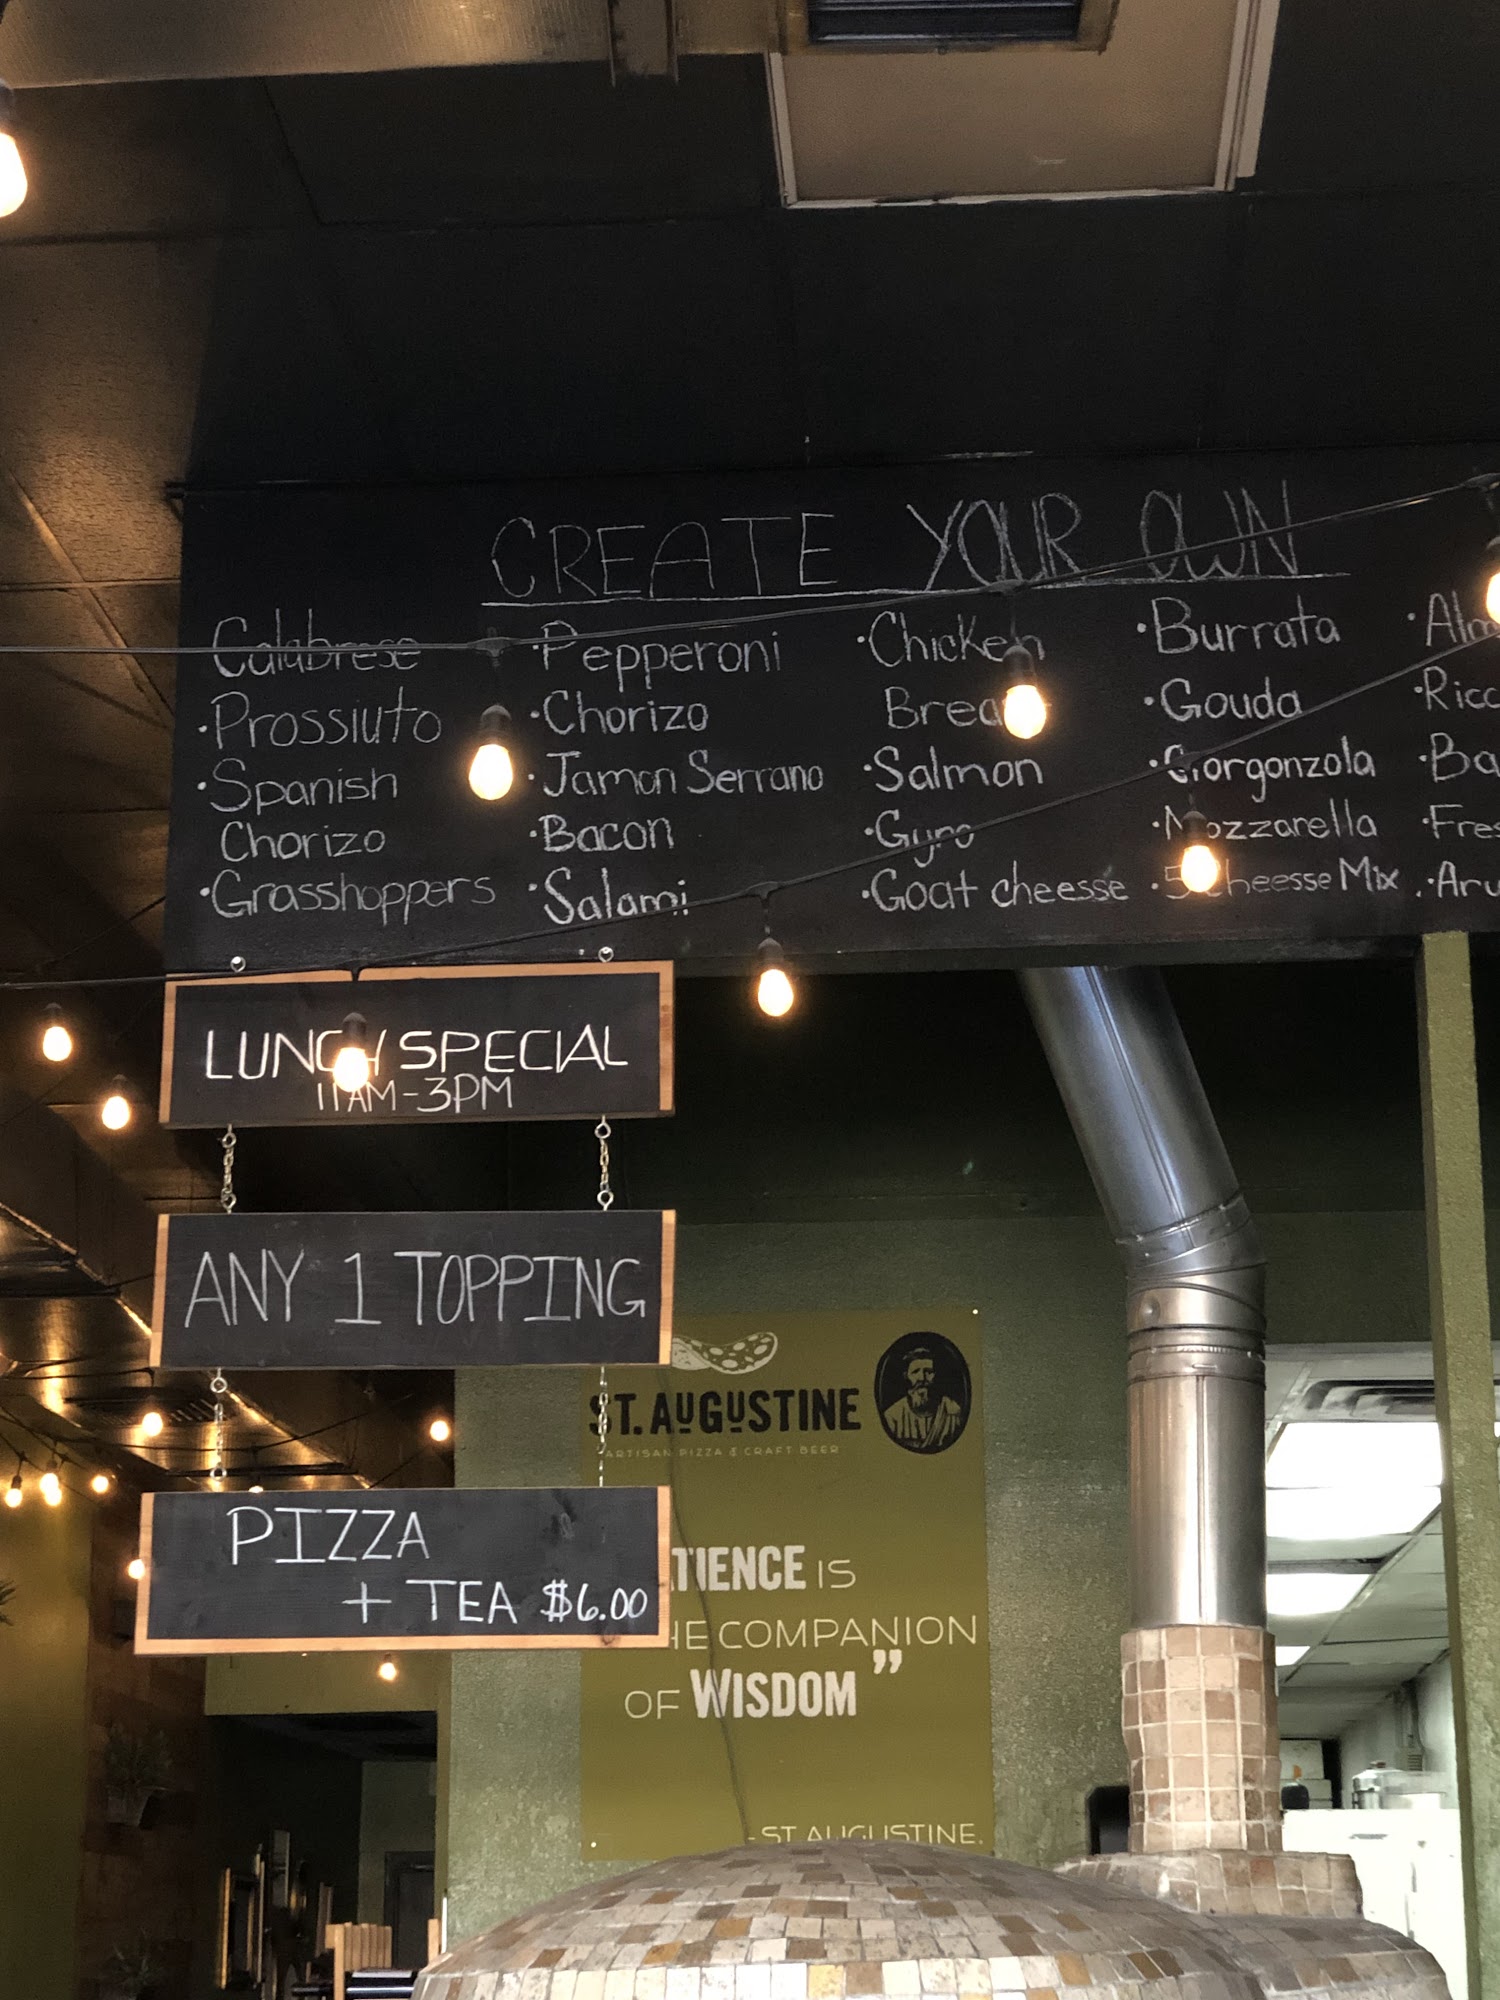 CREATE YOUR OWN
Calabrese
·Prossiuto
·Spanish
Chorizo
·Grasshoppers
·Pepperoni
·Chorizo
·Jamon Serrano
·Bacon
·Salami
·Chicken
·Salmon
·Gyro
·Goat cheesse
·Burrata
·Gouda
·Gorgonzola
·Mozzarella
·5 Cheesse Mix
LUNCH SPECIAL
11AM-3PM
ANY 1 TOPPING
PIZZA
+ TEA $6.00
ST. AUGUSTINE
ARTISAN PIZZA & CRAFT BEER
IS
COMPANION
OF WISDOM”
- ST AUGUSTINE.